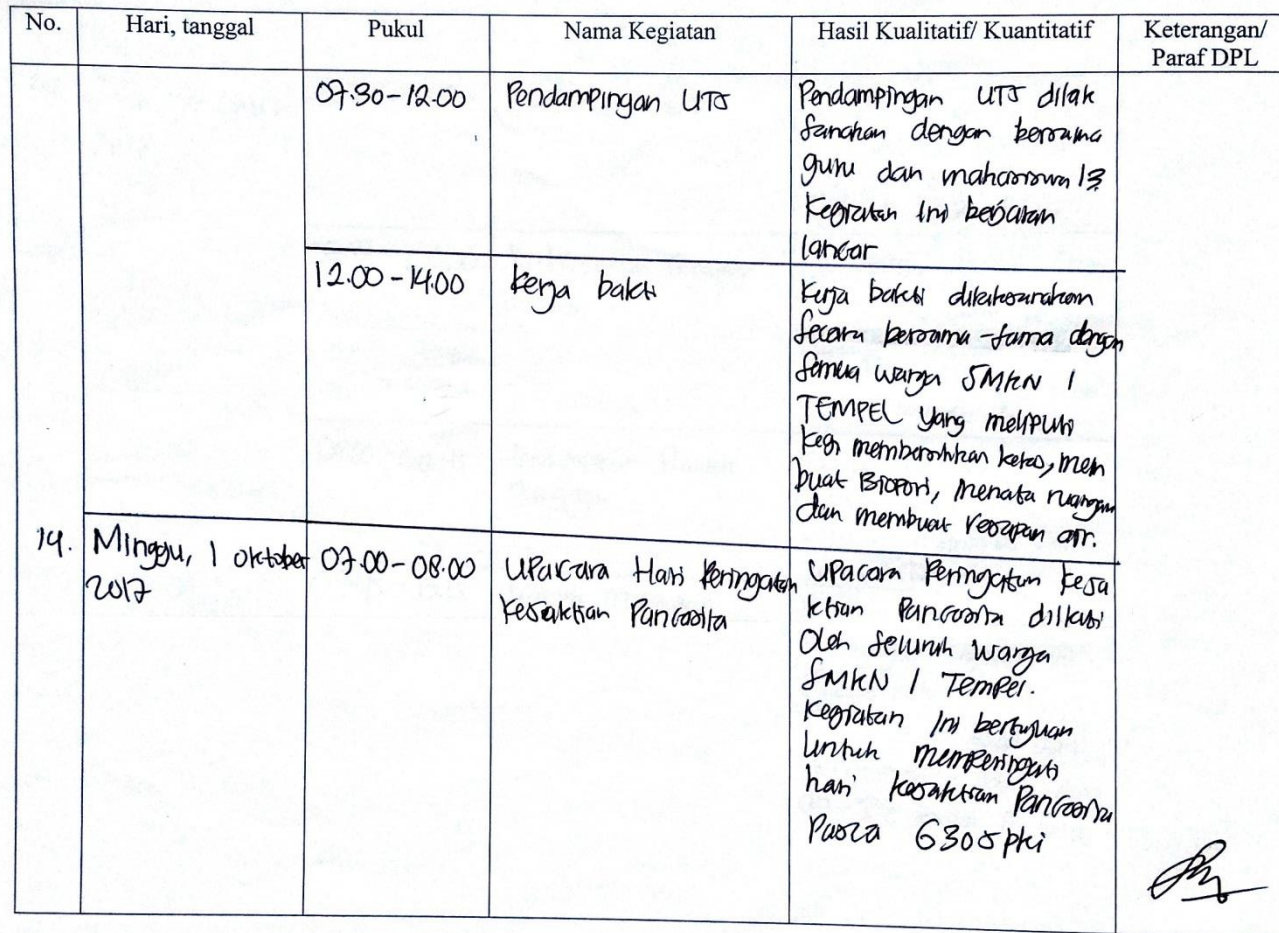 No. Hari, tanggal Pukul Nama Kegiatan Hasil Kualitatif/ Kuantitatif Keterangan/
Paraf DPL
07.30-12.00 Pendampingan UTS Pendampingan UTS dilak
sanakan dengan bersama
guru dan mahasiswa
Kegiatan Ini berjalan
lancar
12.00-14.00 Kerja bakti Kerja bakti dilaksanakan
Secara bersama-sama dengan
Semua warga SMKN 1
TEMPEL yang meliputi
membersihkan kelas, mem
buat Biopori, menata ruangan
dan membuat resapan air.
14. Minggu, 1 oktober 07.00-08.00 Upacara Hari Peringatan Upacara Peringatan Kesa
2017 Kesaktian Pancasila ktian Pancasila diikuti
Oleh Seluruh warga
SMKN 1 Tempel.
Kegiatan Ini bertujuan
Untuk memperingati
hari Kesaktian Pancasila
Pasca G30S pki